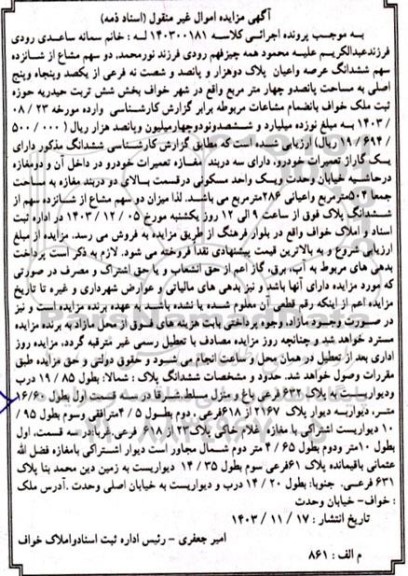 آگهی مزایده اموال غیر منقول (اسناد ذمه)
به موجب پرونده اجرائی کلاسه ۱۴۰۳۰۰۱۸۱ له : خانم سمانه ساعدی رودی
فرزندعبدالکریم علیه محمود همه چیزفهم رودی فرزند نورمحمد، دو سهم مشاع از شانزده
سهم ششدانگ عرصه واعیان پلاک دوهزار و پانصد و شصت نه فرعی از یکصد وپنجاه وپنج
اصلی به مساحت پانصدو چهار متر مربع واقع در شهر خواف بخش شش تربت حیدریه حوزه
ثبت ملک خواف بانضمام مشاعات مربوطه برابر گزارش کارشناسی وارده مورخه ۲۳ / ۰۸
/ ۱۴۰۳ به مبلغ نوزده میلیارد و ششصدونودوچهارمیلیون وپانصد هزار ریال ( ۰۰۰ / ۵۰۰
/ ۶۹۴ / ۱۹ ریال) ارزیابی شده است که مطابق گزارش کارشناسی ششدانگ مذکور دارای
یک گاراژ تعمیرات خودرو، دارای سه دربند مغازه تعمیرات خودرو در داخل آن و دومغازه
درحاشیه خیابان وحدت ویک واحد مسکونی درقسمت بالای دو دربند مغازه به مساحت
جمعا ۵۰۲مترمربع واعیانی ۲۸۶مترمربع می باشد. لذا میزان دو سهم مشاع از شانزده سهم از
ششدانگ پلاک فوق از ساعت ۹ الی ۱۲ روز یکشنبه مورخ ۰۵ / ۱۲ / ۱۴۰۳ در اداره ثبت
اسناد و املاک خواف واقع در بلوار فرهنگ از طریق مزایده به فروش می رسد. مزایده از مبلغ
ارزیابی شروع و به بالاترین قیمت پیشنهادی نقدأ فروخته می شود. لازم به ذکر است پرداخت
بدهی های مربوط به آب، برق، گاز اعم از حق انشعاب و یا حق اشتراک و مصرف در صورتی
که مورد مزایده دارای آنها باشد و نیز بدهی های مالیاتی و عوارض شهرداری و غیره تا تاریخ
مزایده اعم از اینکه رقم قطعی آن معلوم شده یا نشده باشد، به عهده برنده مزایده است و نیز
در صورت وجود مازاد، وجوه پرداختی بابت هزینه های فوق از محل مازاد به برنده مزایده
مسترد خواهد شد و چنانچه روز مزایده مصادف با تعطیل رسمی غیر مترقبه گردد، مزایده روز
اداری بعد از تعطیل در همان محل و ساعت انجام می شود و حقوق دولتی و حق مزایده طبق
مقررات وصول خواهد شد. حدود و مشخصات ششدانگ پلاک : شمالا: بطول ۸۵ / ۱۹ درب
ودیواریست به پلاک ۶۳۲ فرعی باغ و منزل بساط شرقا در سه قسمت اول بطول ۱۶/۶۰
متسر، دیواربه دیوار پلاک ۲۱۶۷ از ۶۱۸فرعی، دوم بطول ۵ / ۴مترافقی وسوم بطول ۹۵ /
۱۰ دیواریست اشتراکی با مغازه غلام خاکی پلاک۲۳ از ۶۱۸ فرعی غربا در سه قسمت، اول
بطول ۱۰متر ودوم بطول ۶۵ / ۴ متر دوم شمال مجاور است دیوار اشتراکی بامغازه فضل الله
عثمانی باقیمانده پلاک ۶۱فرعی سوم بطول ۳۵ / ۱۴ دیواریست به زمین دین محمد بنا پلاک
۶۳۱ فرعی. جنوبا: بطول ۲۰ / ۱۴ درب و دیواریست به خیابان اصلی وحدت .آدرس ملک
: خواف- خیابان وحدت
تاریخ انتشار : ۱۷ / ۱۱ / ۱۴۰۳
امیر جعفری - رئیس اداره ثبت اسنادواملاک خواف
م الف : ۸۶۱